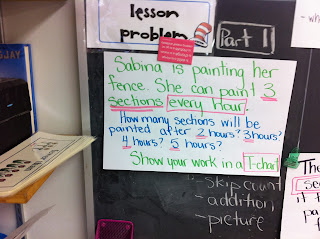 lesson
problem
Part 1
Sabina is painting her
fence. She can paint 3
sections every hour.
How many sections will be
painted after 2 hours? 3 hours?
4 hours? 5 hours?
Show your work in a T-chart
- skip count
- addition
- picture